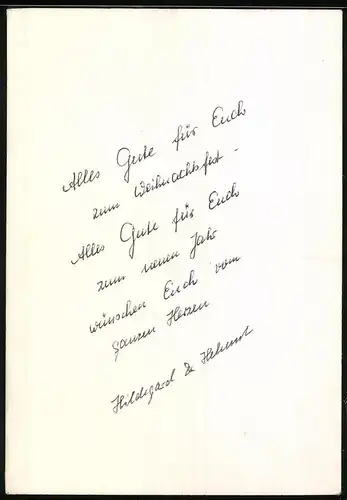 Alles Gute für Euch
zum Weihnachtsfest -
Alles Gute für Euch
zum neuen Jahr
wünschen Euch vom
ganzen Herzen
Hildegard & Helmut